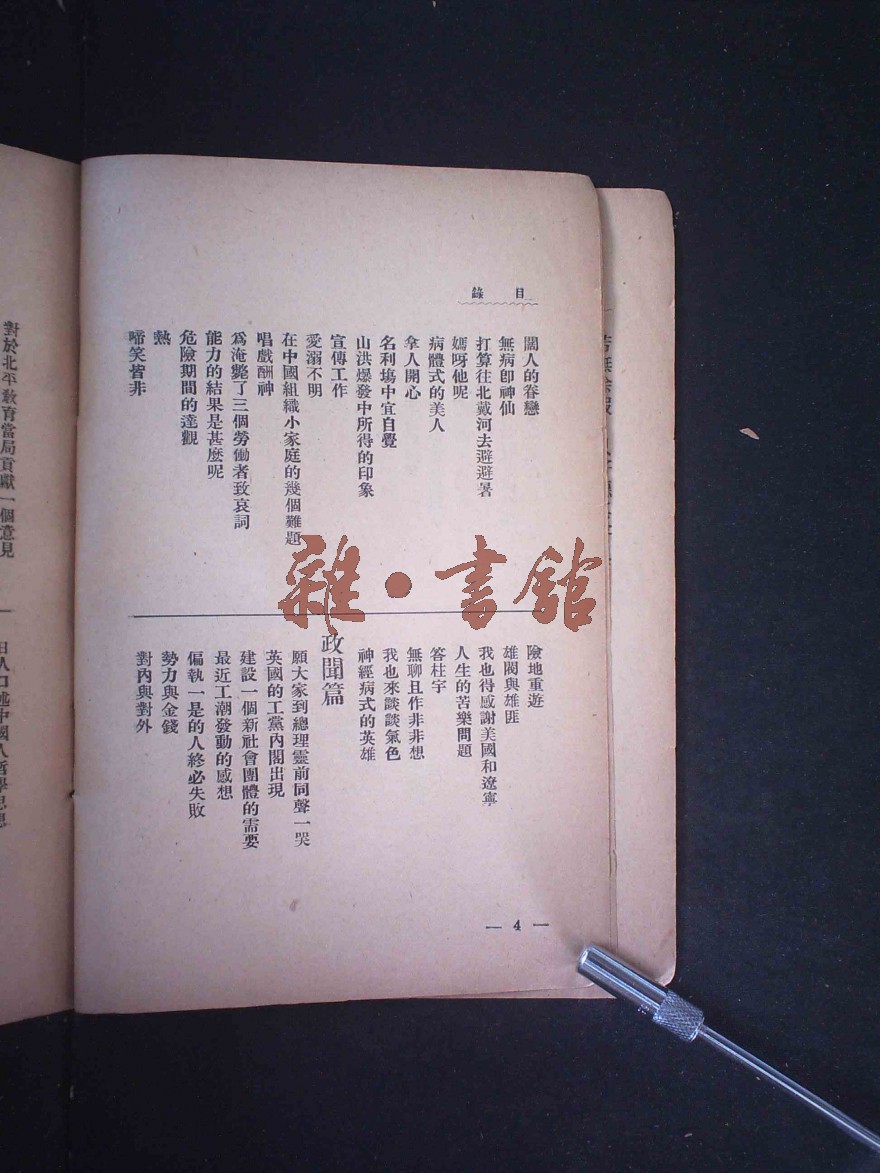 目錄
闊人的眷戀
無病卽神仙
打算往北戴河去避避暑
媽呀他呢
病體式的美人
拿人開心
名利塲中宜自覺
山洪爆發中所得的印象
宣傳工作
愛溺不明
在中國組織小家庭的幾個難題
唱戲酬神
爲淹斃了三個勞働者致哀詞
能力的結果是甚麼呢
危險期間的達觀
熱
啼笑皆非
險地重遊
雄閥與雄匪
我也得感謝美國和遼寧
人生的苦樂問題
答柱宇
無聊且作非非想
我也來談談氣色
神經病式的英雄
政聞篇
願大家到總理靈前同聲一哭
英國的工黨內閣出現
建設一個新社會團體的需要
最近工潮發動的感想
偏執一是的人終必失敗
勢力與金錢
對內與對外
— 4 —
對於北平敎育當局貢獻一個意見
日人口述中國人哲學思想
雜·書館